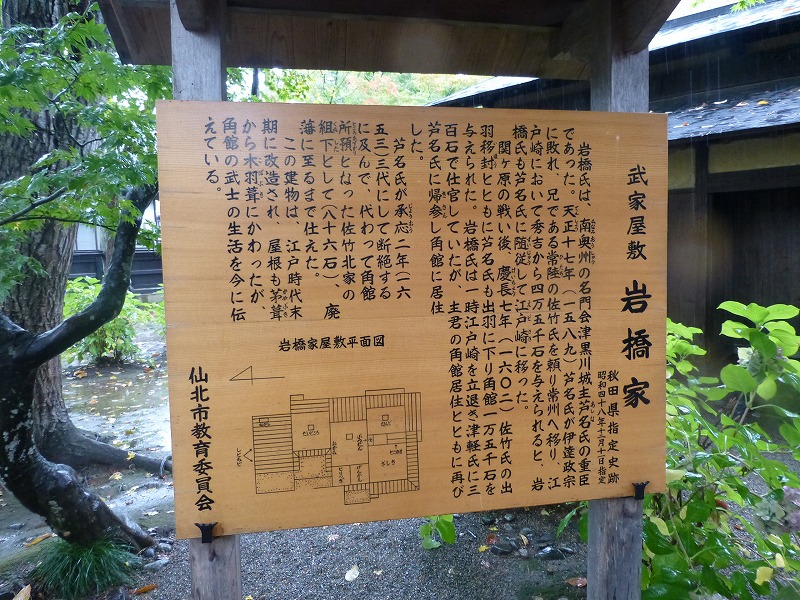 武家屋敷 岩橋家
秋田県指定史跡
昭和四十八年十二月十一日指定
岩橋氏は、南奥州の名門会津黒川城主芦名氏の重臣
であった。天正十七年(一五八九)芦名氏が伊達政宗
に敗れ、兄である常陸の佐竹氏を頼り常州へ移り、江
戸崎において秀吉から四万五千石を与えられると、岩
橋氏も芦名氏に随従して江戸崎に移った。
関ヶ原の戦い後、慶長七年(一六〇二)佐竹氏の出
羽移封とともに芦名氏も出羽に下り角館一万五千石を
与えられた。岩橋氏は一時江戸崎を立退き津軽氏に三
百石で仕官していたが、主君の角館居住とともに再び
芦名氏に帰参し角館に居住
した。
芦名氏が承応二年(一六
五三)三代にして断絶する
に及んで、代わって角館
所預となった佐竹北家の
組下として(八十六石)、廃
藩に至るまで仕えた。
この建物は、江戸時代末
期に改造され、屋根も茅葺
から木羽葺にかわったが、
角館の武士の生活を今に伝
えている。
岩橋家屋敷平面図
ざしき
仙北市教育委員会